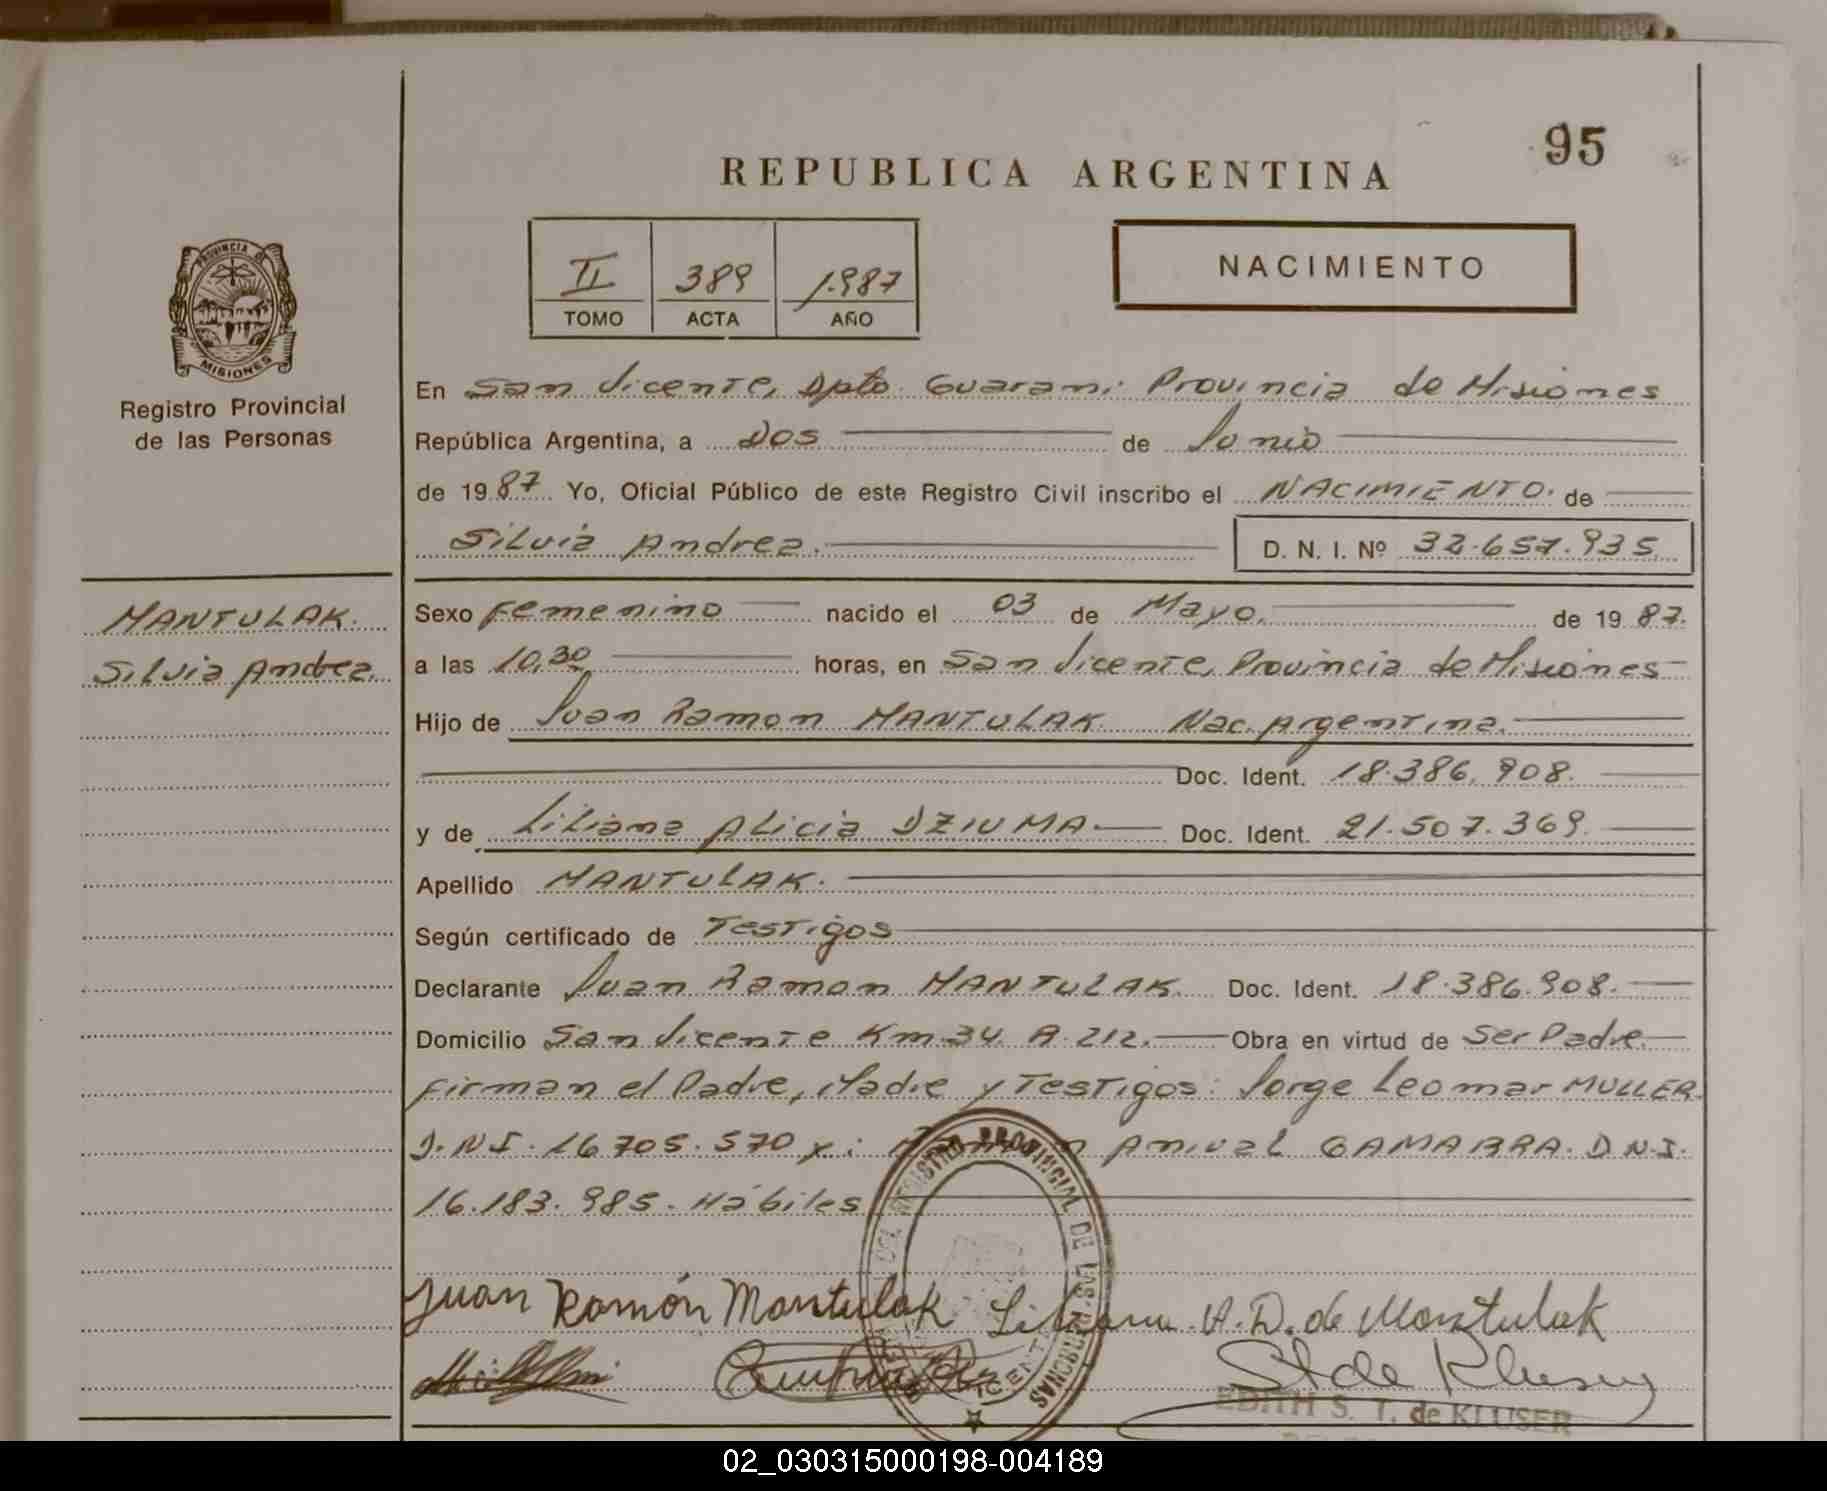 95
REPUBLICA ARGENTINA
II 389 1.987
TOMO ACTA AÑO
NACIMIENTO
PROVINCIA DE
MISIONES
Registro Provincial
de las Personas
En San Vicente, Dpto. Guarani Provincia de Misiones
República Argentina, a Dos de Junio
de 1987. Yo, Oficial Público de este Registro Civil inscribo el NACIMIENTO. de
Silvia Andrea. D. N. I. Nº 32.657.935
MANTULAK.
Silvia Andrea.
Sexo Femenino nacido el 03 de Mayo. de 1987.
a las 10,30 horas, en San Vicente, Provincia de Misiones
Hijo de Juan Ramon MANTULAK. Nac. Argentina.
Doc. Ident. 18.386.908.
y de Liliana Alicia DZIUMA. Doc. Ident. 21.507.369.
Apellido MANTULAK.
Según certificado de Testigos
Declarante Juan Ramon MANTULAK. Doc. Ident. 18.386.908.
Domicilio San Vicente Km.34. A.212. Obra en virtud de Ser Padre.
Firman el Padre, Madre y Testigos: Jorge Leomar MULLER.
D.N.I. 16.705.570 y: Anival GAMARRA. D.N.I.
16.183.985. Hábiles
DEL REGISTRO PROVINCIAL DE LAS PERSONAS
VICENTE
Juan Ramón Mantulak Liliana A. D. de Mantulak
St de Kluser
EDITH S. T. de KLUSER
02_030315000198-004189